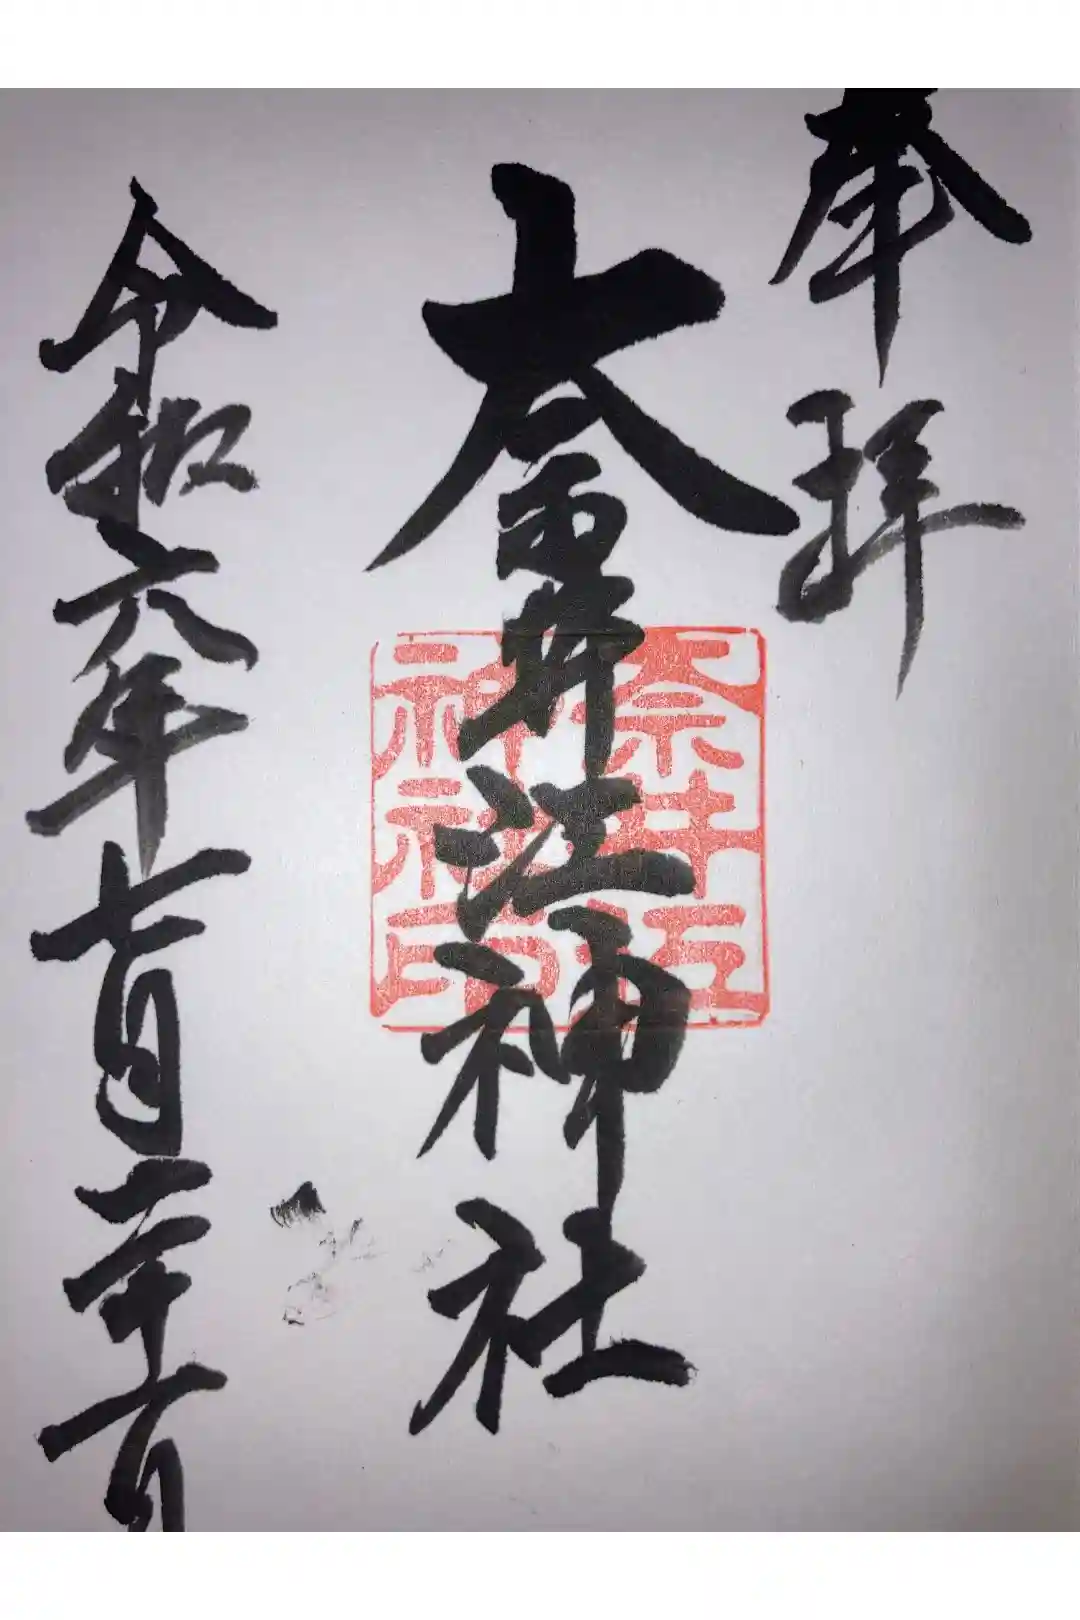 奉拝
奈井江神社
奈井江
神社印
令和六年七月二十一日